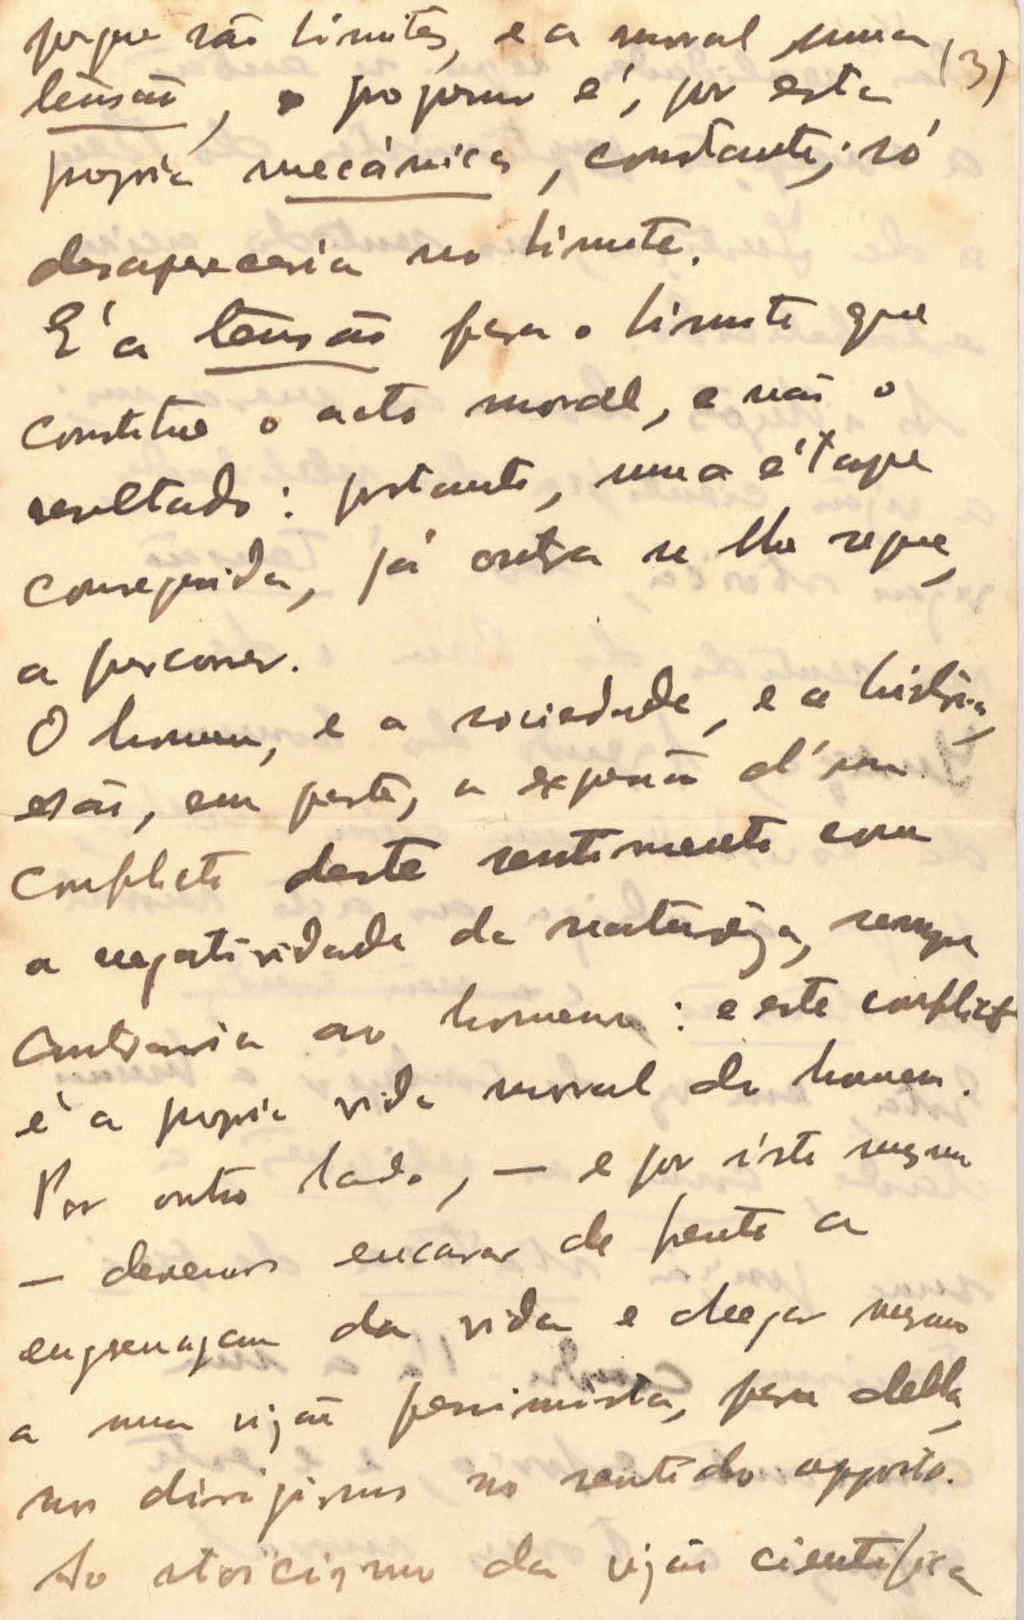 porque são limites, e a moral uma (3)
tensão, o progresso é, por esta
propria mecânica, constante; só
desapareceria no limite.
E' a tensão para o limite que
constitue o acto moral, e não o
resultado: portanto, uma étape
conseguida, já outra se lhe segue,
a percorrer.
O homem, e a sociedade, e a história,
são, em parte, a expressão d'um
conflicto deste sentimento com
a negatividade da naturêza, sempre
contraria ao homem: e este conflicto
é a propria vida moral do homem.
Por outro lado, — e por isto mesmo
— devemos encarar de frente a
engrenagem da vida e chegar mesmo
a uma visão pessimista, para della,
nos dirigirmos no sentido opposto.
Ao stoicismo da visão cientifica